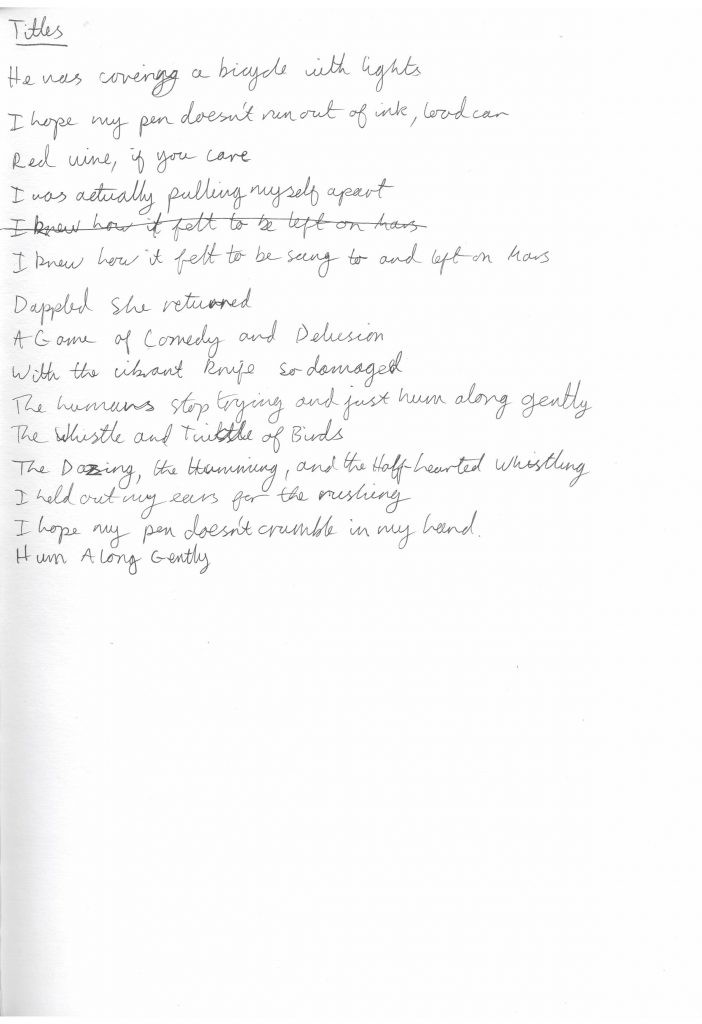 Titles
He was covering a bicycle with lights
I hope my pen doesn't run out of ink,
Red wine, if you care
I was actually pulling myself apart
I knew how it felt to be left on Mars
I knew how it felt to be sung to and left on Mars
Dappled she returned
A Game of Comedy and Delusion
With the vibrant knife so damaged
The humans stop trying and just hum along gently
The Whistle and of Birds
The Dozing, the Humming, and the Half-hearted Whistling
I held out my ears for the rushing
I hope my pen doesn't crumble in my hand.
Hum Along Gently